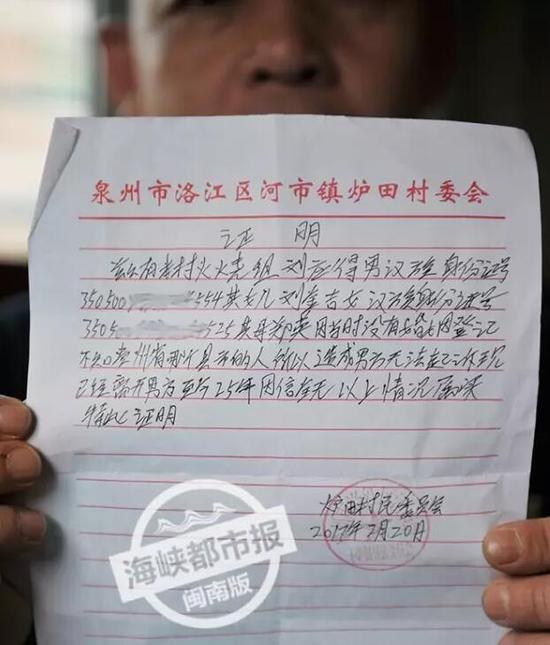 泉州市洛江区河市镇炉田村委会
证 明
兹有我村火尖组刘应得男汉族身份证号
350500 554其女儿刘 吉女汉族身份证号
3505 525其母郑英因当时没有结婚登记
不知贵州省那个县市的人所以造成男方无法起诉现
已经离开男方至今25年因信在无以上情况属实
特此证明
炉田村民委员会
2017年2月20日
海峡都市报
闽南版